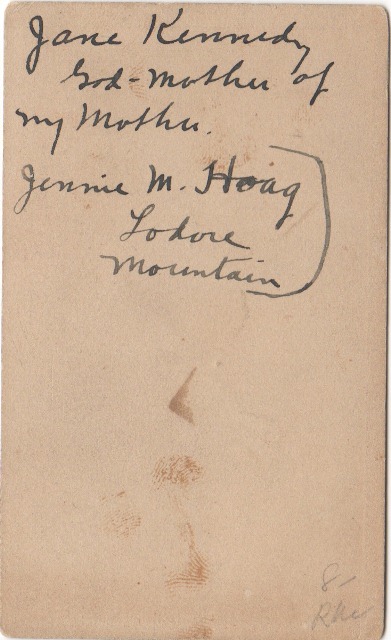 Jane Kennedy
God-Mother of
my Mother.
Jennie M. Hoag
Lodore
Mountain
8-